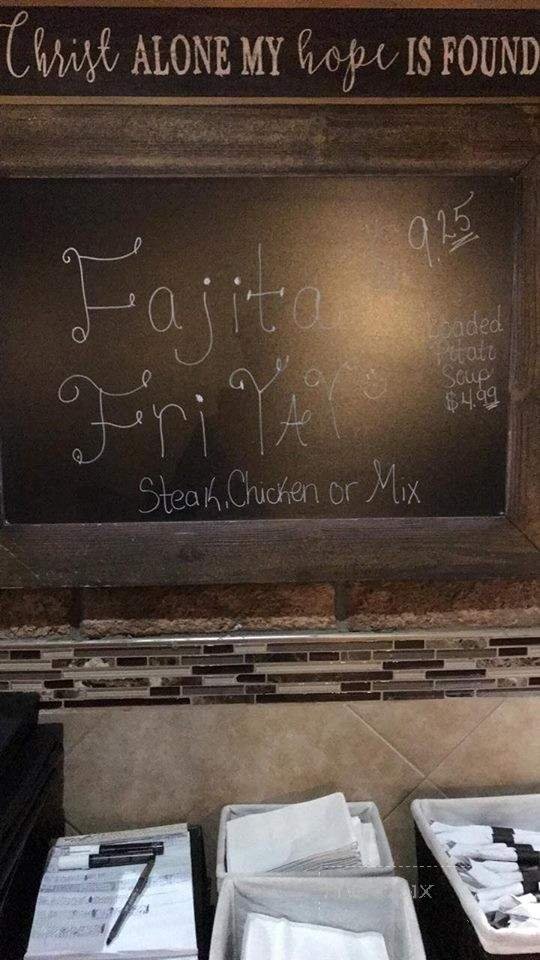 Christ ALONE MY hope IS FOUND
9.25
Fajita
Fri YAY
Loaded
Potato
Soup
$4.99
Steak, Chicken or Mix